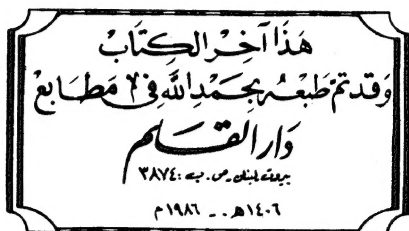 هَذَا آخِرُ الكِتَابْ
وَقَد تمّ طَبْعُه بِحَمْدِ اللهِ فِي مَطَابِعْ
دَار القَلم
بيروت لبنان ـ ص. ب : ٣٨٧٤
١٤٠٦هـ ـ ١٩٨٦م